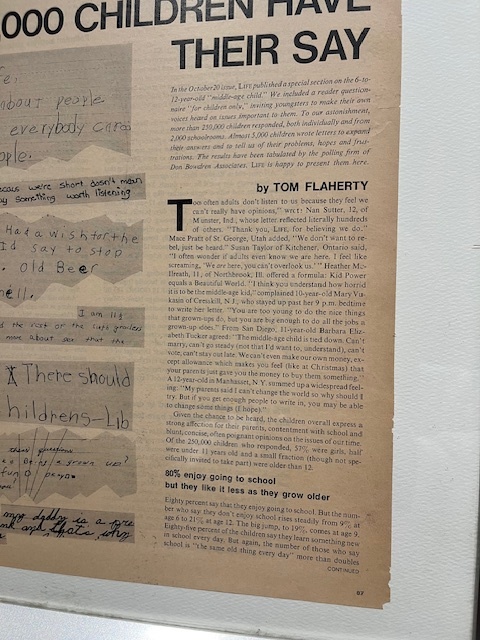 ,000 CHILDREN HAVE
THEIR SAY
In the October 20 issue, LIFE published a special section on the 6-to-
12-year-old "middle-age child." We included a reader question-
naire "for children only," inviting youngsters to make their own
voices heard on issues important to them. To our astonishment,
more than 250,000 children responded, both individually and from
2,000 schoolrooms. Almost 5,000 children wrote letters to expand
their answers and to tell us of their problems, hopes and frus-
trations. The results have been tabulated by the polling firm of
Don Bowdren Associates. LIFE is happy to present them here.
by TOM FLAHERTY
Too often adults don't listen to us because they feel we
can't really have opinions," wrote Nan Sutter, 12, of
Munster, Ind., whose letter reflected literally hundreds
of others. "Thank you, LIFE, for believing we do."
Mace Pratt of St. George, Utah added, "We don't want to re-
bel, just be heard." Susan Taylor of Kitchener, Ontario said,
"I often wonder if adults even know we are here. I feel like
screaming, 'We are here, you can't overlook us.' " Heather Mc-
Ilreath, 11, of Northbrook, Ill. offered a formula: Kid Power
equals a Beautiful World. "I think you understand how horrid
it is to be the middle-age kid," complained 10-year-old Mary
kain of Cresskill, N.J., who stayed up past her 9 p.m. bedtime
to write her letter. "You are too young to do the nice things
that grown-ups do, but you are big enough to do all the jobs a
grown-up does." From San Diego, 11-year-old Barbara Eliz-
abeth Tucker agreed: "The middle-age child is tied down. Can't
marry, can't go steady (not that I'd want to, understand), can't
vote, can't stay out late. We can't even make our own money, ex-
cept allowance which makes you feel (like at Christmas) that
your parents just gave you the money to buy them something."
A 12-year-old in Manhasset, N.Y. summed up a widespread feel-
ing: "My parents said I can't change the world so why should I
try. But if you get enough people to write in, you may be able
to change some things (I hope)."
Given the chance to be heard, the children overall express a
strong affection for their parents, contentment with school and
blunt, concise, often poignant opinions on the issues of our time.
Of the 250,000 children who responded, 57% were girls, half
were under 11 years old and a small fraction (though not spe-
cifically invited to take part) were older than 12.
80% enjoy going to school
but they like it less as they grow older
Eighty percent say that they enjoy going to school. But the num-
ber who say they don't enjoy school rises steadily from 9% at
age 6 to 21% at age 12. The big jump, to 19%, comes at age 9.
Eighty-five percent of the children say they learn something new
in school every day. But again, the number of those who say
school is "the same old thing every day" more than doubles
CONTINUED
87
about people
everybody cares
ople.
we're short doesn't mean
something worth listening
Had a wish for the
I'd say to stop
old Beer
I am
the rest of the sixth graders
more about sex that the
There should
hildrens-Lib
grown up?
fun
my daddy is a
and that's why